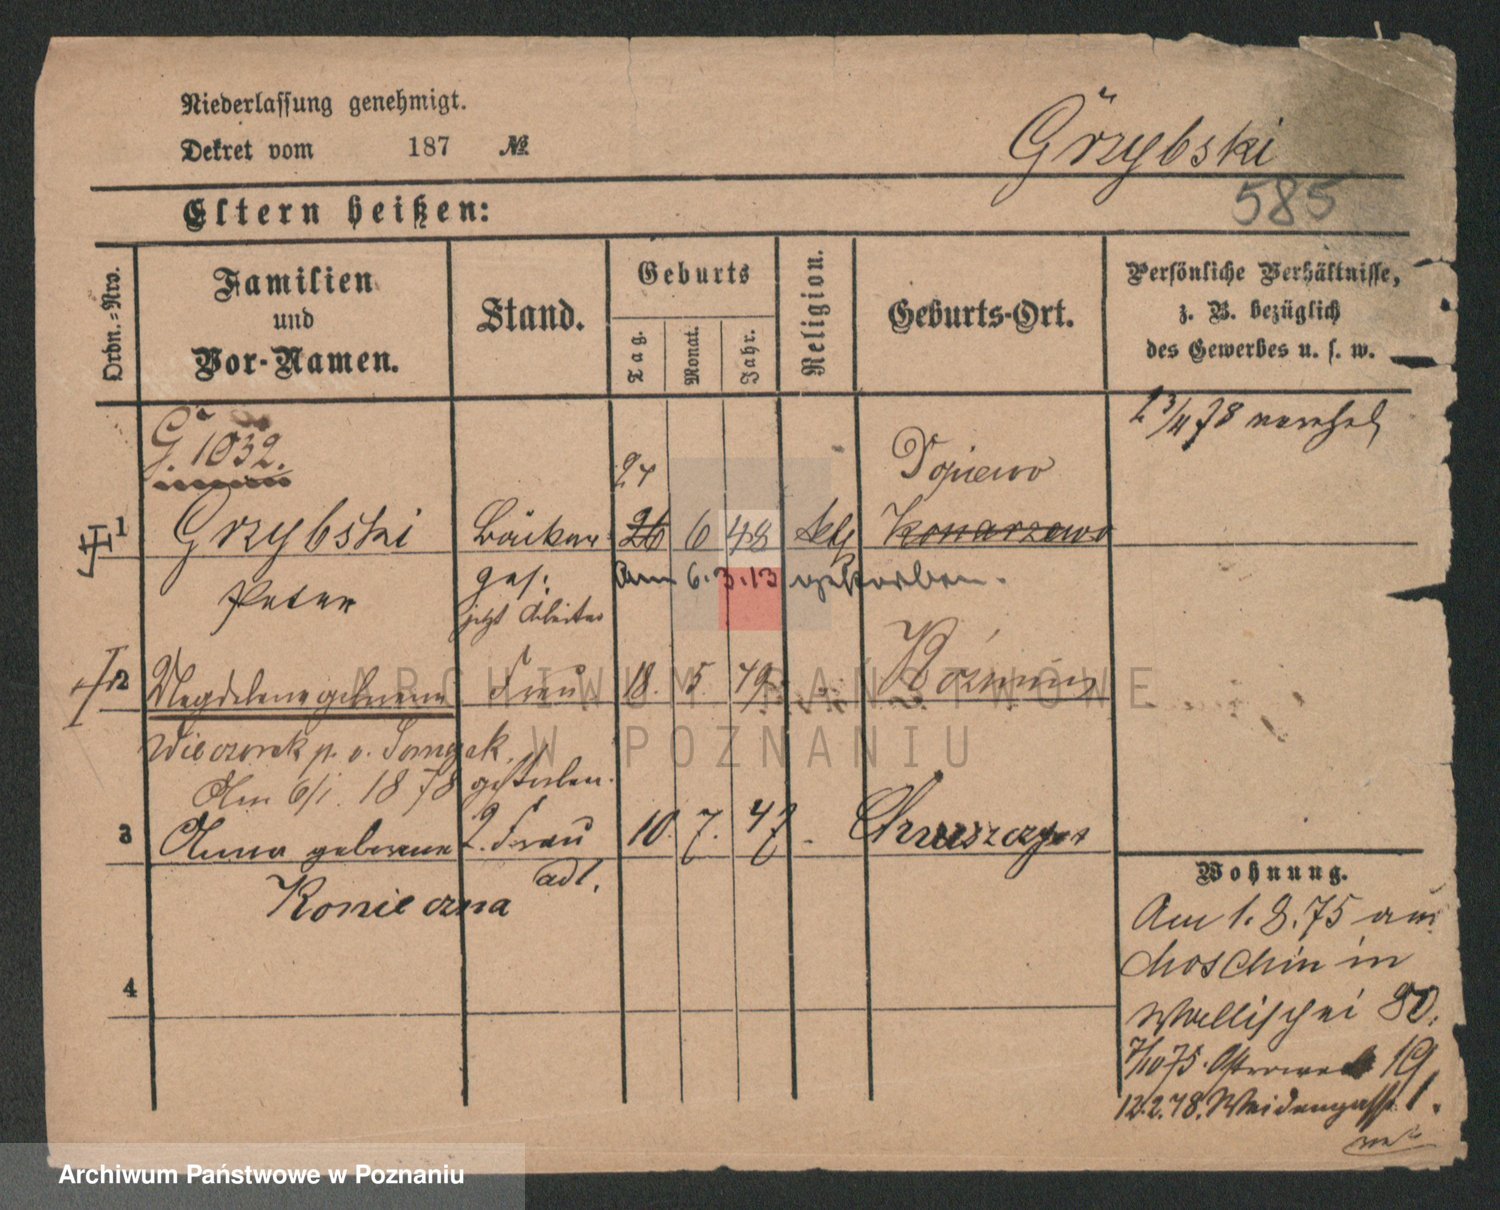 Niederlassung genehmigt.
Dekret vom 187 №
Grzybski
585
Eltern heißen:
Ordn.=Nro.
Familien und Vor-Namen.
Stand.
Geburts
Tag.
Monat.
Jahr.
Religion.
Geburts-Ort.
Persönliche Verhältnisse,
z. B. bezüglich
des Gewerbes u. s. w.
G. 1032.
27
1 Grzybski Bäcker 26 6 48 kth Konarzewo
Peter ges: Am 6.3.13 gestorben.
jetzt Arbeiter
2 Magdalena geborene Frau 18. 5. 49.
Wieczorek p. v.
Am 6/1. 1878 gestorben.
3 Anna geborene 2. Frau 10. 7. 47
Konieczna adl.
4
Wohnung.
Am 1.8.75 aus
Moschin in
Wallischei 80.
7/10 75. Ostrowek 19
12.2.78. Weidengasse 1.
ARCHIWUM PAŃSTWOWE
W POZNANIU
Archiwum Państwowe w Poznaniu